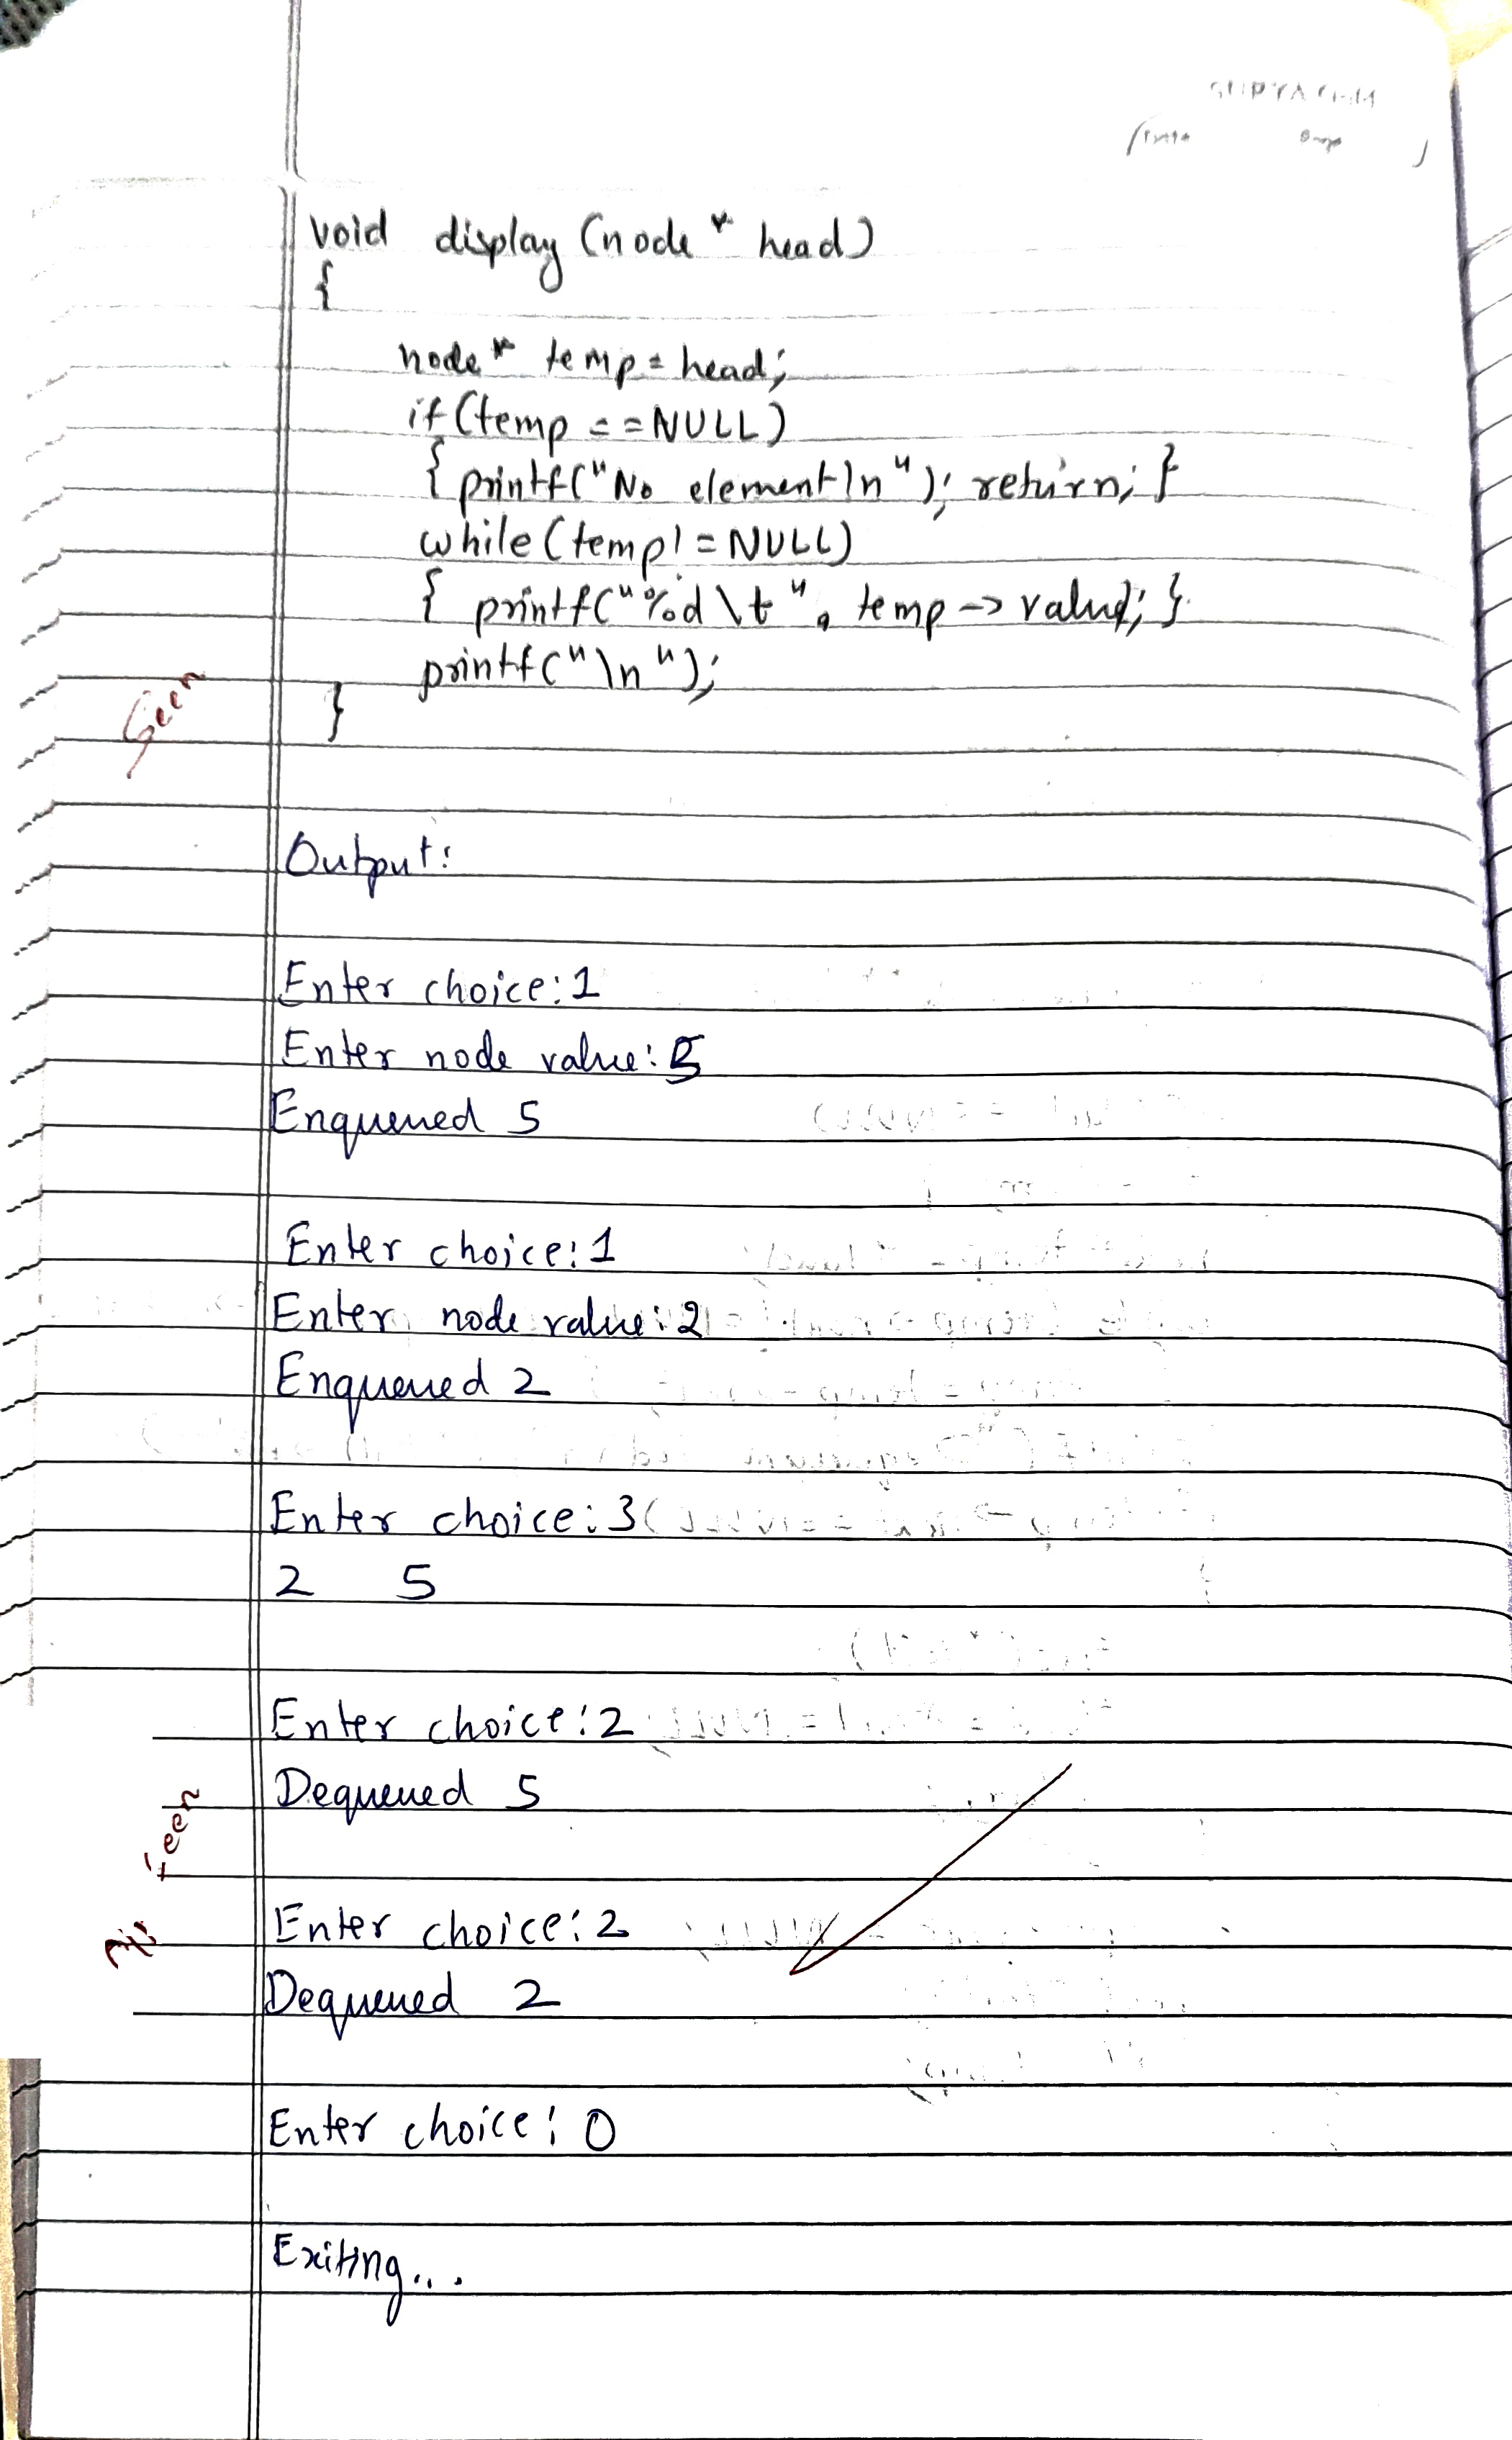 void display (node * head)
{
node * temp = head;
if (temp == NULL)
{ printf("No element\n"); return; }
while (temp != NULL)
{ printf("%d \t", temp -> value); }
printf("\n");
}
Seen
Output:
Enter choice: 1
Enter node value: 5
Enqueued 5
Enter choice: 1
Enter node value: 2
Enqueued 2
Enter choice: 3
2 5
Enter choice: 2
Dequeued 5
Seen
Enter choice: 2
Dequeued 2
Enter choice: 0
Exiting...